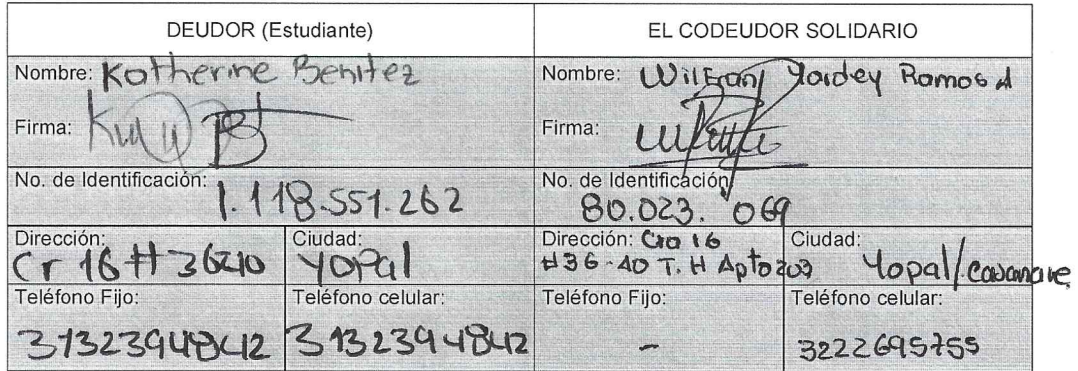 DEUDOR (Estudiante)
EL CODEUDOR SOLIDARIO
Nombre: Katherine Benitez
Nombre: Yaidey Ramos A
Firma:
Firma:
No. de Identificación: 1.118.551.262
No. de Identificación 80.023.069
Dirección: Cr 16 # 36
Ciudad: YOPal
Dirección: Cra 16
#36-40 T. H Apto 203
Ciudad: Yopal/casanare
Teléfono Fijo: 3132394842
Teléfono celular: 3132394842
Teléfono Fijo: -
Teléfono celular: 3222695755